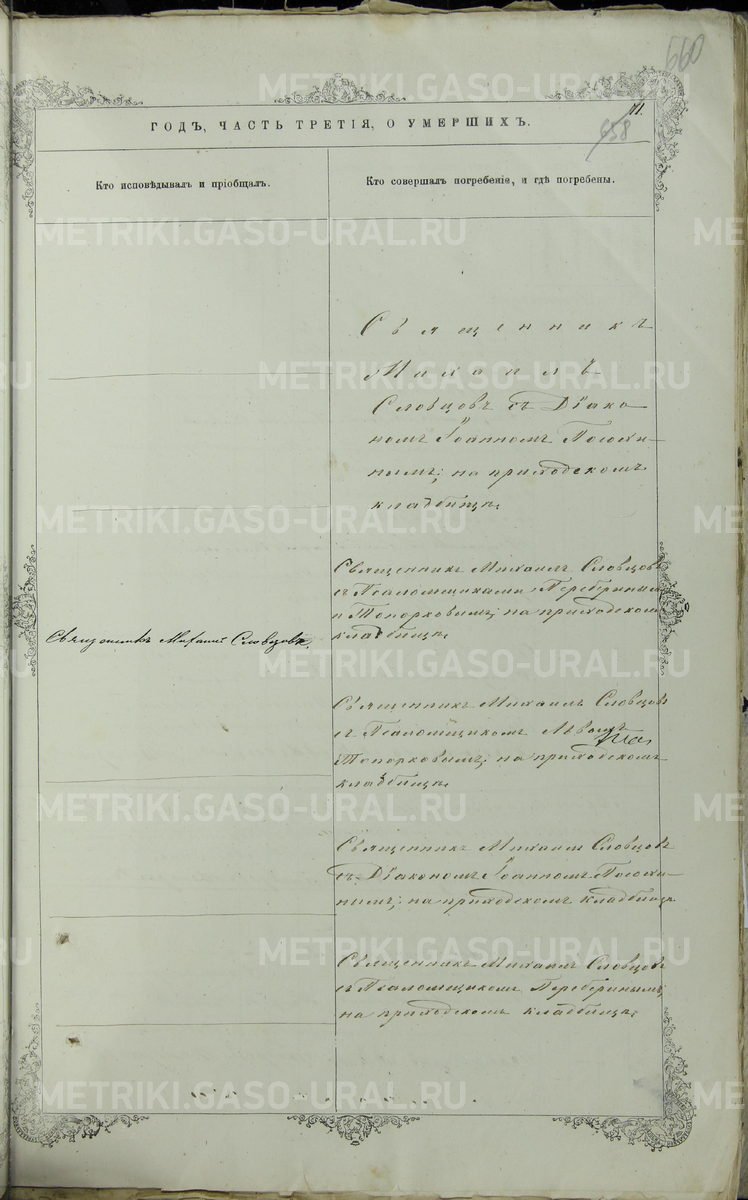 660
11.
658
ГОДЪ, ЧАСТЬ ТРЕТІЯ, О УМЕРШИХЪ.
Кто исповѣдывалъ и пріобщалъ.
Кто совершалъ погребеніе, и гдѣ погребены.
Священникъ
Михаилъ
Словцовъ съ Діако-
номъ Іоанномъ
нымъ; на приходскомъ
кладбищѣ.
Священникъ Михаилъ Словцовъ
съ Псаломщиками Переберинымъ
и Топорковымъ; на приходскомъ
кладбищѣ.
Священникъ Михаилъ Словцовъ.
Священникъ Михаилъ Словцовъ
съ Псаломщикомъ
Топорковымъ; на приходскомъ
кладбищѣ.
Священникъ Михаилъ Словцовъ
съ Діакономъ Іоанномъ
нымъ; на приходскомъ кладбищѣ.
Священникъ Михаилъ Словцовъ
съ Псаломщикомъ Переберинымъ;
на приходскомъ кладбищѣ.
METRIKI.GASO-URAL.RU